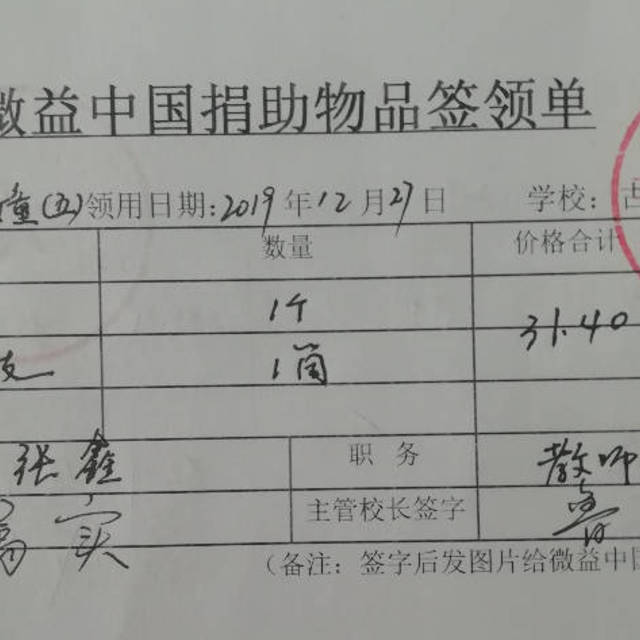 微益中国捐助物品签领单
(五)领用日期:2019年12月27日 学校:
数量 价格合计
1个 31.40
1筒
张鑫 职务 教师
主管校长签字
(备注:签字后发图片给微益中国